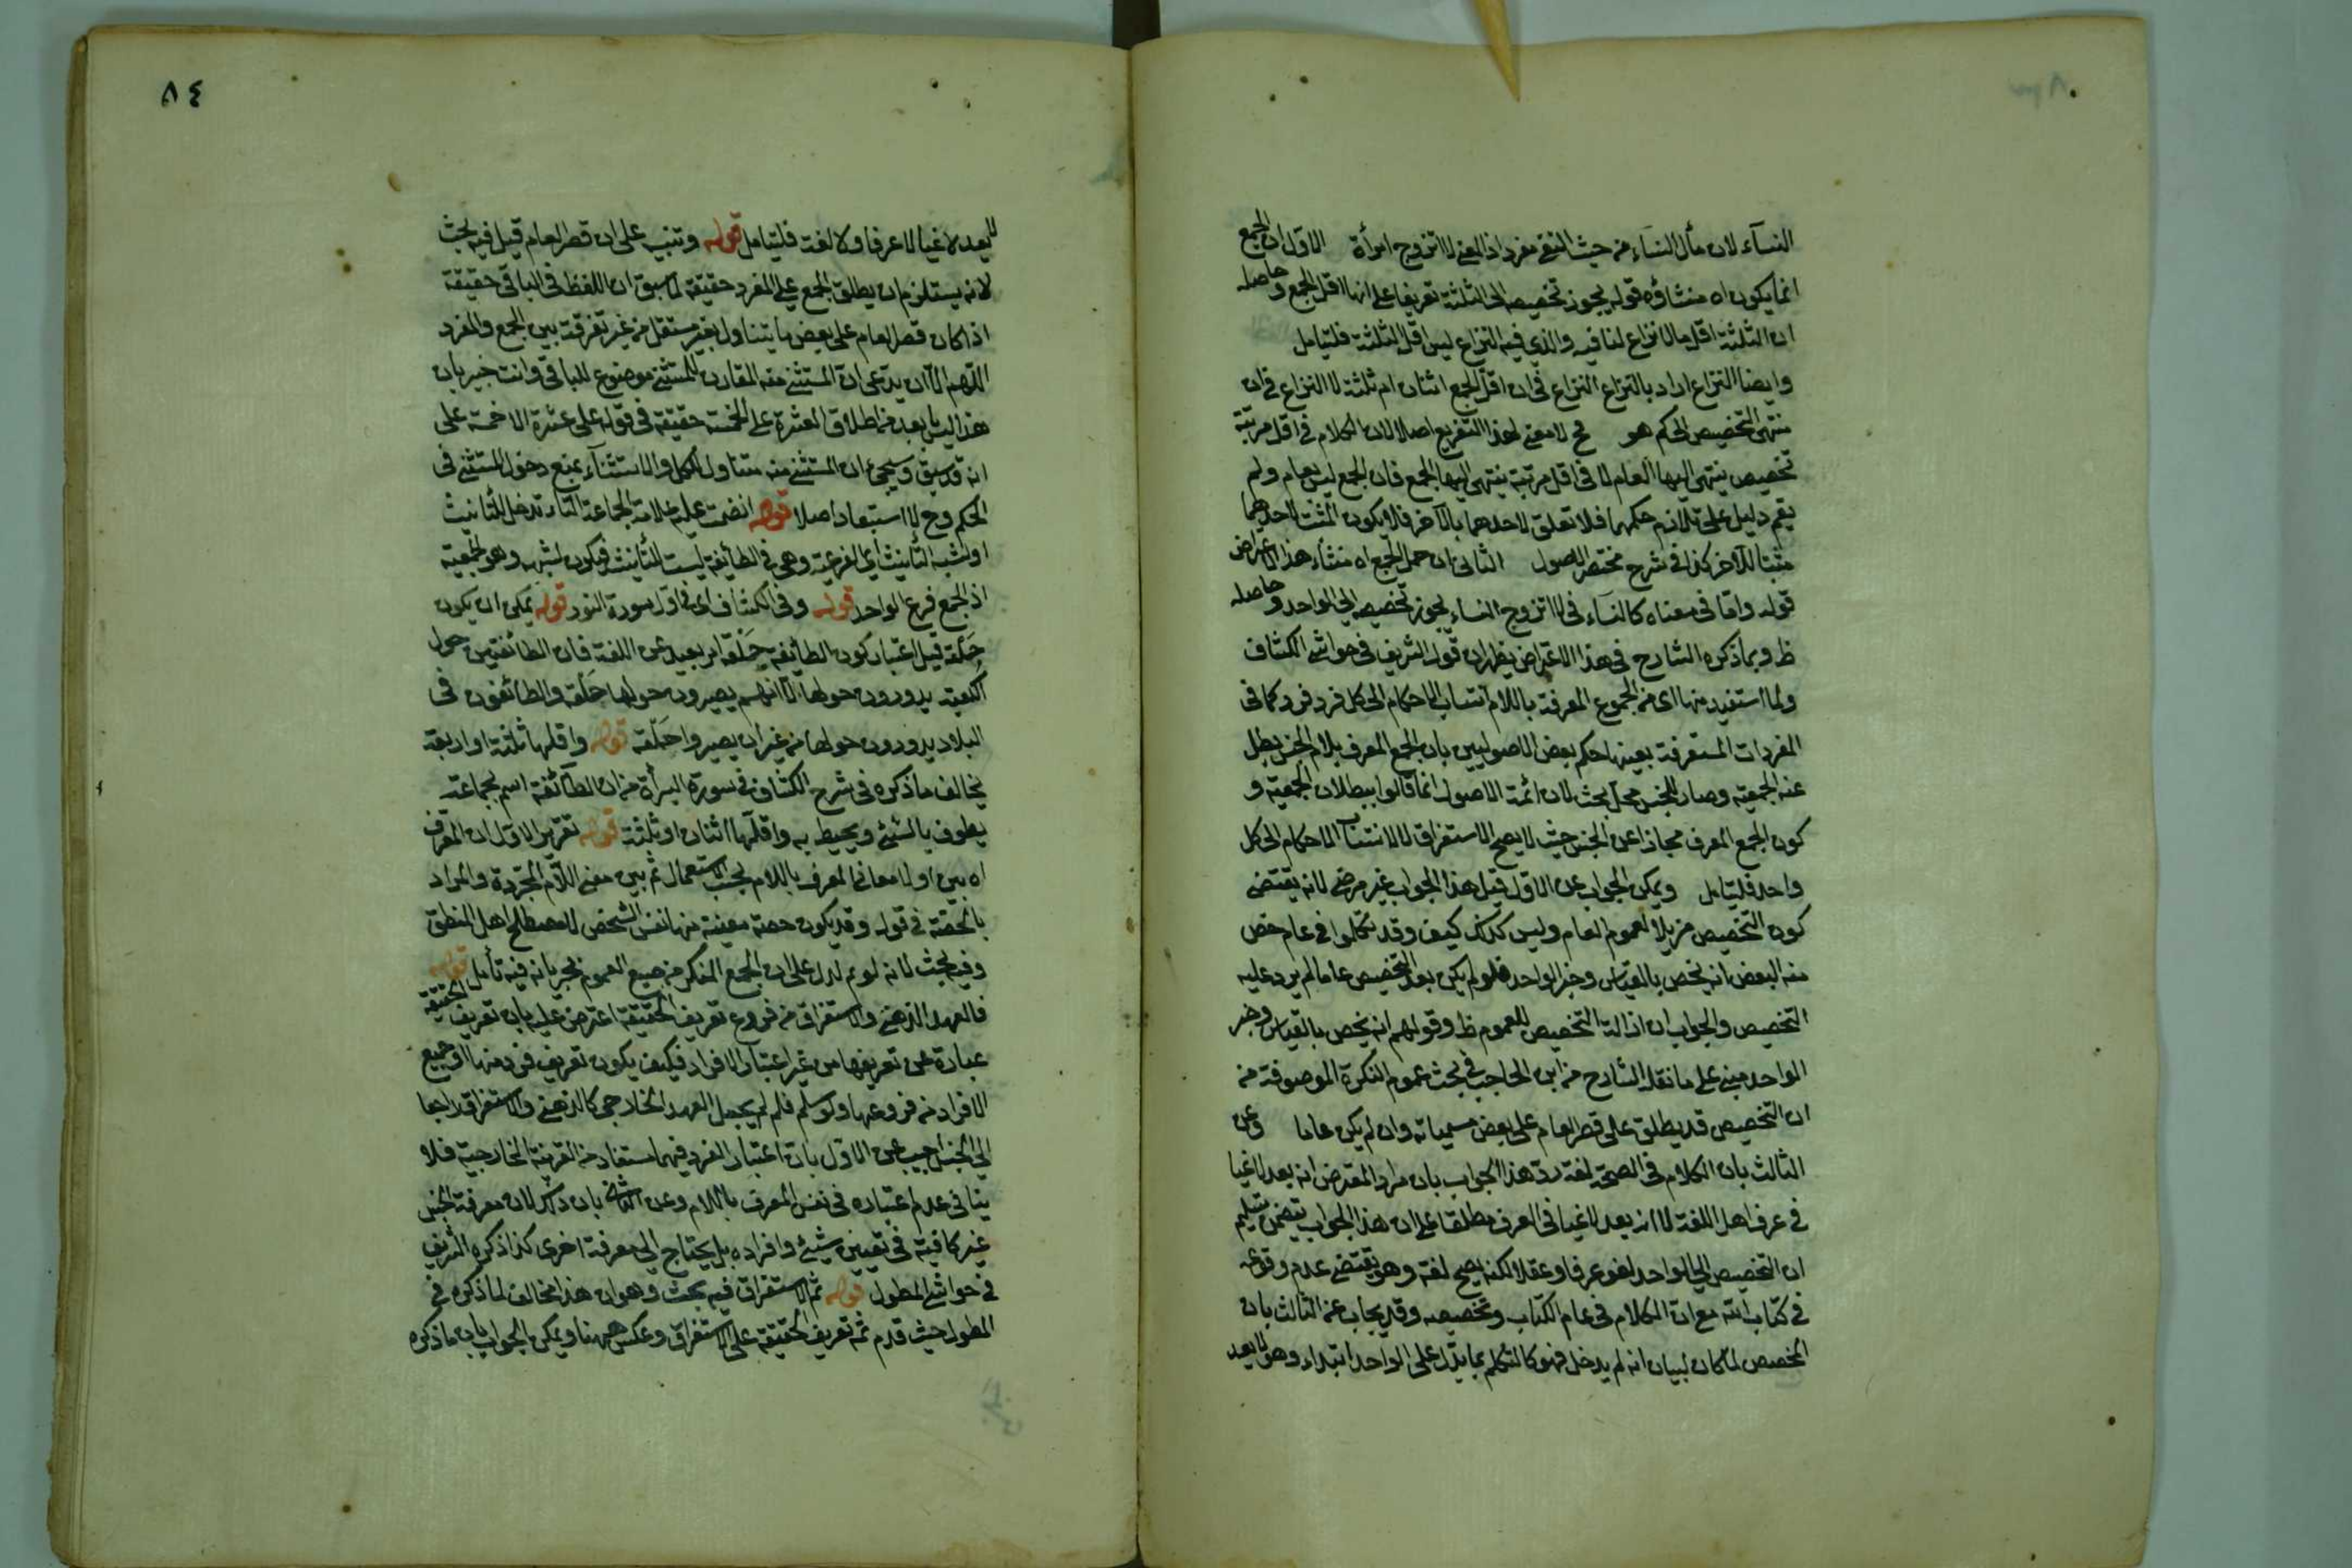 النسآء لان مأل النسآء من حيث النفي مفرد اذ المعنى لا اتزوج امرأة الاول ان الجمع
انما يكون اه منشاؤه قوله يجوز تخصيصه الى الثلثة تفريعا على انها اقل الجمع وحاصله
ان الثلثة اقل ما لا نزاع لنا فيه والذي فيه النزاع ليس اقل الثلثة فليتامل
وايضا النزاع اراد بالنزاع النزاع في ان اقل الجمع اثنان ام ثلثة لا النزاع في ان
منتهى التخصيص الى كم هو فح لا معنى لهذا التفريع اصلا لان الكلام في اقل مرتبة
تخصيص ينتهى اليها العام لا في اقل مرتبة ينتهى اليها الجمع فان الجمع ليس بعام ولم
يقم دليل على تلازم حكمهما فلا تعلق لاحدهما بالآخر فلا يكون المثبت لاحدهما
مثبتا للآخر كذا في شرح مختصر الاصول الثانى ان حمل الجمع اه منشاء هذا الاعتراض
قوله واما فى معناه كالنسآء فى لا اتزوج النساء يجوز تخصيصه الى الواحد وحاصله
ظ وبما ذكره الشارح فى هذا الاعتراض يظهر ان قول الشريف فى حواشى الكشاف
ولما استفيد منها اى من الجموع المعرفة باللام انتساب الاحكام الى كل فرد فرد كما فى
المفردات المستغرقة بعينها حكم بعض الاصوليين بان الجمع المعرف بلام الجنس بطل
عنه الجمعية وصار للجنس محل بحث لان ائمة الاصول انما قالوا ببطلان الجمعية و
كون الجمع المعرف مجازا عن الجنس حيث لا يصح الاستغراق لا لانتساب الاحكام الى كل
واحد فليتامل ويمكن الجواب عن الاول قيل هذا الجواب غير مرضى لانه يقتضى
كون التخصيص مزيلا لعموم العام وليس كذلك كيف وقد تكلموا فى عام خص
منه البعض انه يخص بالقياس وخبر الواحد فلو لم يكن بعد التخصيص عاما لم يرد عليه
التخصيص والجواب ان ازالة التخصيص للعموم ظ وقولهم انه يخص بالقياس وخبر
الواحد مبنى على ما نقله الشارح من ابن الحاجب فى بحث عموم النكرة الموصوفة من
ان التخصيص قد يطلق على قصر العام على بعض مسمياته وان لم يكن عاما وعن
الثالث بان الكلام فى الصحة لغة رد هذا الجواب بان مراد المعترض انه يعد لاغيا
فى عرف اهل اللغة لا انه يعد لاغيا فى العرف مطلقا على ان هذا الجواب يتضمن تسليم
ان التخصيص الى الواحد لغو عرفا وعقلا لكنه يصح لغة وهو يقتضى عدم وقوعه
فى كتاب الله مع ان الكلام فى عام الكتاب وتخصيصه وقد يجاب عن الثالث بان
المخصص لما كان لبيان انه لم يدخل فهو كالتكلم بما يدل على الواحد ابتداء وهو لا يعد
٨٤
لا يعد لاغيا لا عرفا ولا لغة فليتامل قوله وتنبيه على ان قصر العام قيل فيه بحث
لانه يستلزم ان يطلق الجمع على المفرد حقيقة لما سبق ان اللفظ فى الباقى حقيقة
اذا كان قصر العام على بعض ما يتناوله بغير مستقل من غير تفرقة بين الجمع والمفرد
اللهم الا ان يدعى ان المستثنى منه المقارن للمستثنى موضوع للباقى وانت خبير بان
هذا ليس بابعد من اطلاق العشرة على الخمسة حقيقة فى قوله على عشرة الا خمسة على
انه قد سبق وسيجئ ان المستثنى منه متناول للكل والاستثنآء يمنع دخول المستثنى فى
الحكم وح لا استبعاد اصلا قوله انضمت عليه علامة الجماعة التاء تدخل للتانيث
او لشبه التأنيث اى الفرعية وهى فى الطائفة ليست للتأنيث فيكون لشبهه وهو الجمعية
اذ الجمع فرع الواحد قوله وفى الكشاف اى فى اول سورة النور قوله يمكن ان يكون
حَلْقة قيل اعتبار كون الطائفة حَلْقة امر بعيد عن اللغة فان الطائفتين حول
الكعبة يدورون حولها الا انهم يصيرون حولها حَلْقة والطائفون فى
البلاد يدورون حولها من غير ان يصيروا حَلْقة قوله واقلها ثلثة او اربعة
يخالف ما ذكره فى شرح الكشاف فى سورة البرأة من ان الطآئفة اسم لجماعة
يطوف بالشئ ويحيط به واقلها اثنان او ثلثة قوله تقرير الاول ان المعرف
اه بين اولا معانى المعرف باللام بحسب الاستعمال ثم بين معنى اللام المجردة والمراد
بالحصة فى قوله وقد يكون حصة معينة منها نفس الشخص لا مصطلح اهل المنطق
وفيه بحث لانه لو تم لدل على ان الجمع المنكر من صيغ العموم يجرى بانه فيه تأمل قوله
فالعهد الذهنى والاستغراق من فروع تعريف الحقيقة اعترض عليه بان تعريف الحقيقة
عبارة عن تعريفها من غير اعتبار الافراد فكيف يكون تعريف فرد منها او جميع
الافراد من فروعها ولو سلم فلم لم يجعل العهد الخارجى كالذهنى والاستغراق راجعا
الى الجنس اجيب عن الاول بان اعتبار الفرد فيهما مستفاد من القرينة الخارجية فلا
ينافى عدم اعتباره فى نفس المعرف باللام وعن الثانى بان ذلك لان معرفة الجنس
غير كافية فى تعيين شئ وافراده بل يحتاج الى معرفة اخرى كذا ذكره الشريف
فى حواشى المطول قوله ثم الاستغراق فيه بحث وهو ان هذا مخالف لما ذكره فى
المطول حيث قدم ثمة تعريف الحقيقة على الاستغراق وعكس ههنا ويمكن الجواب بان ما ذكره